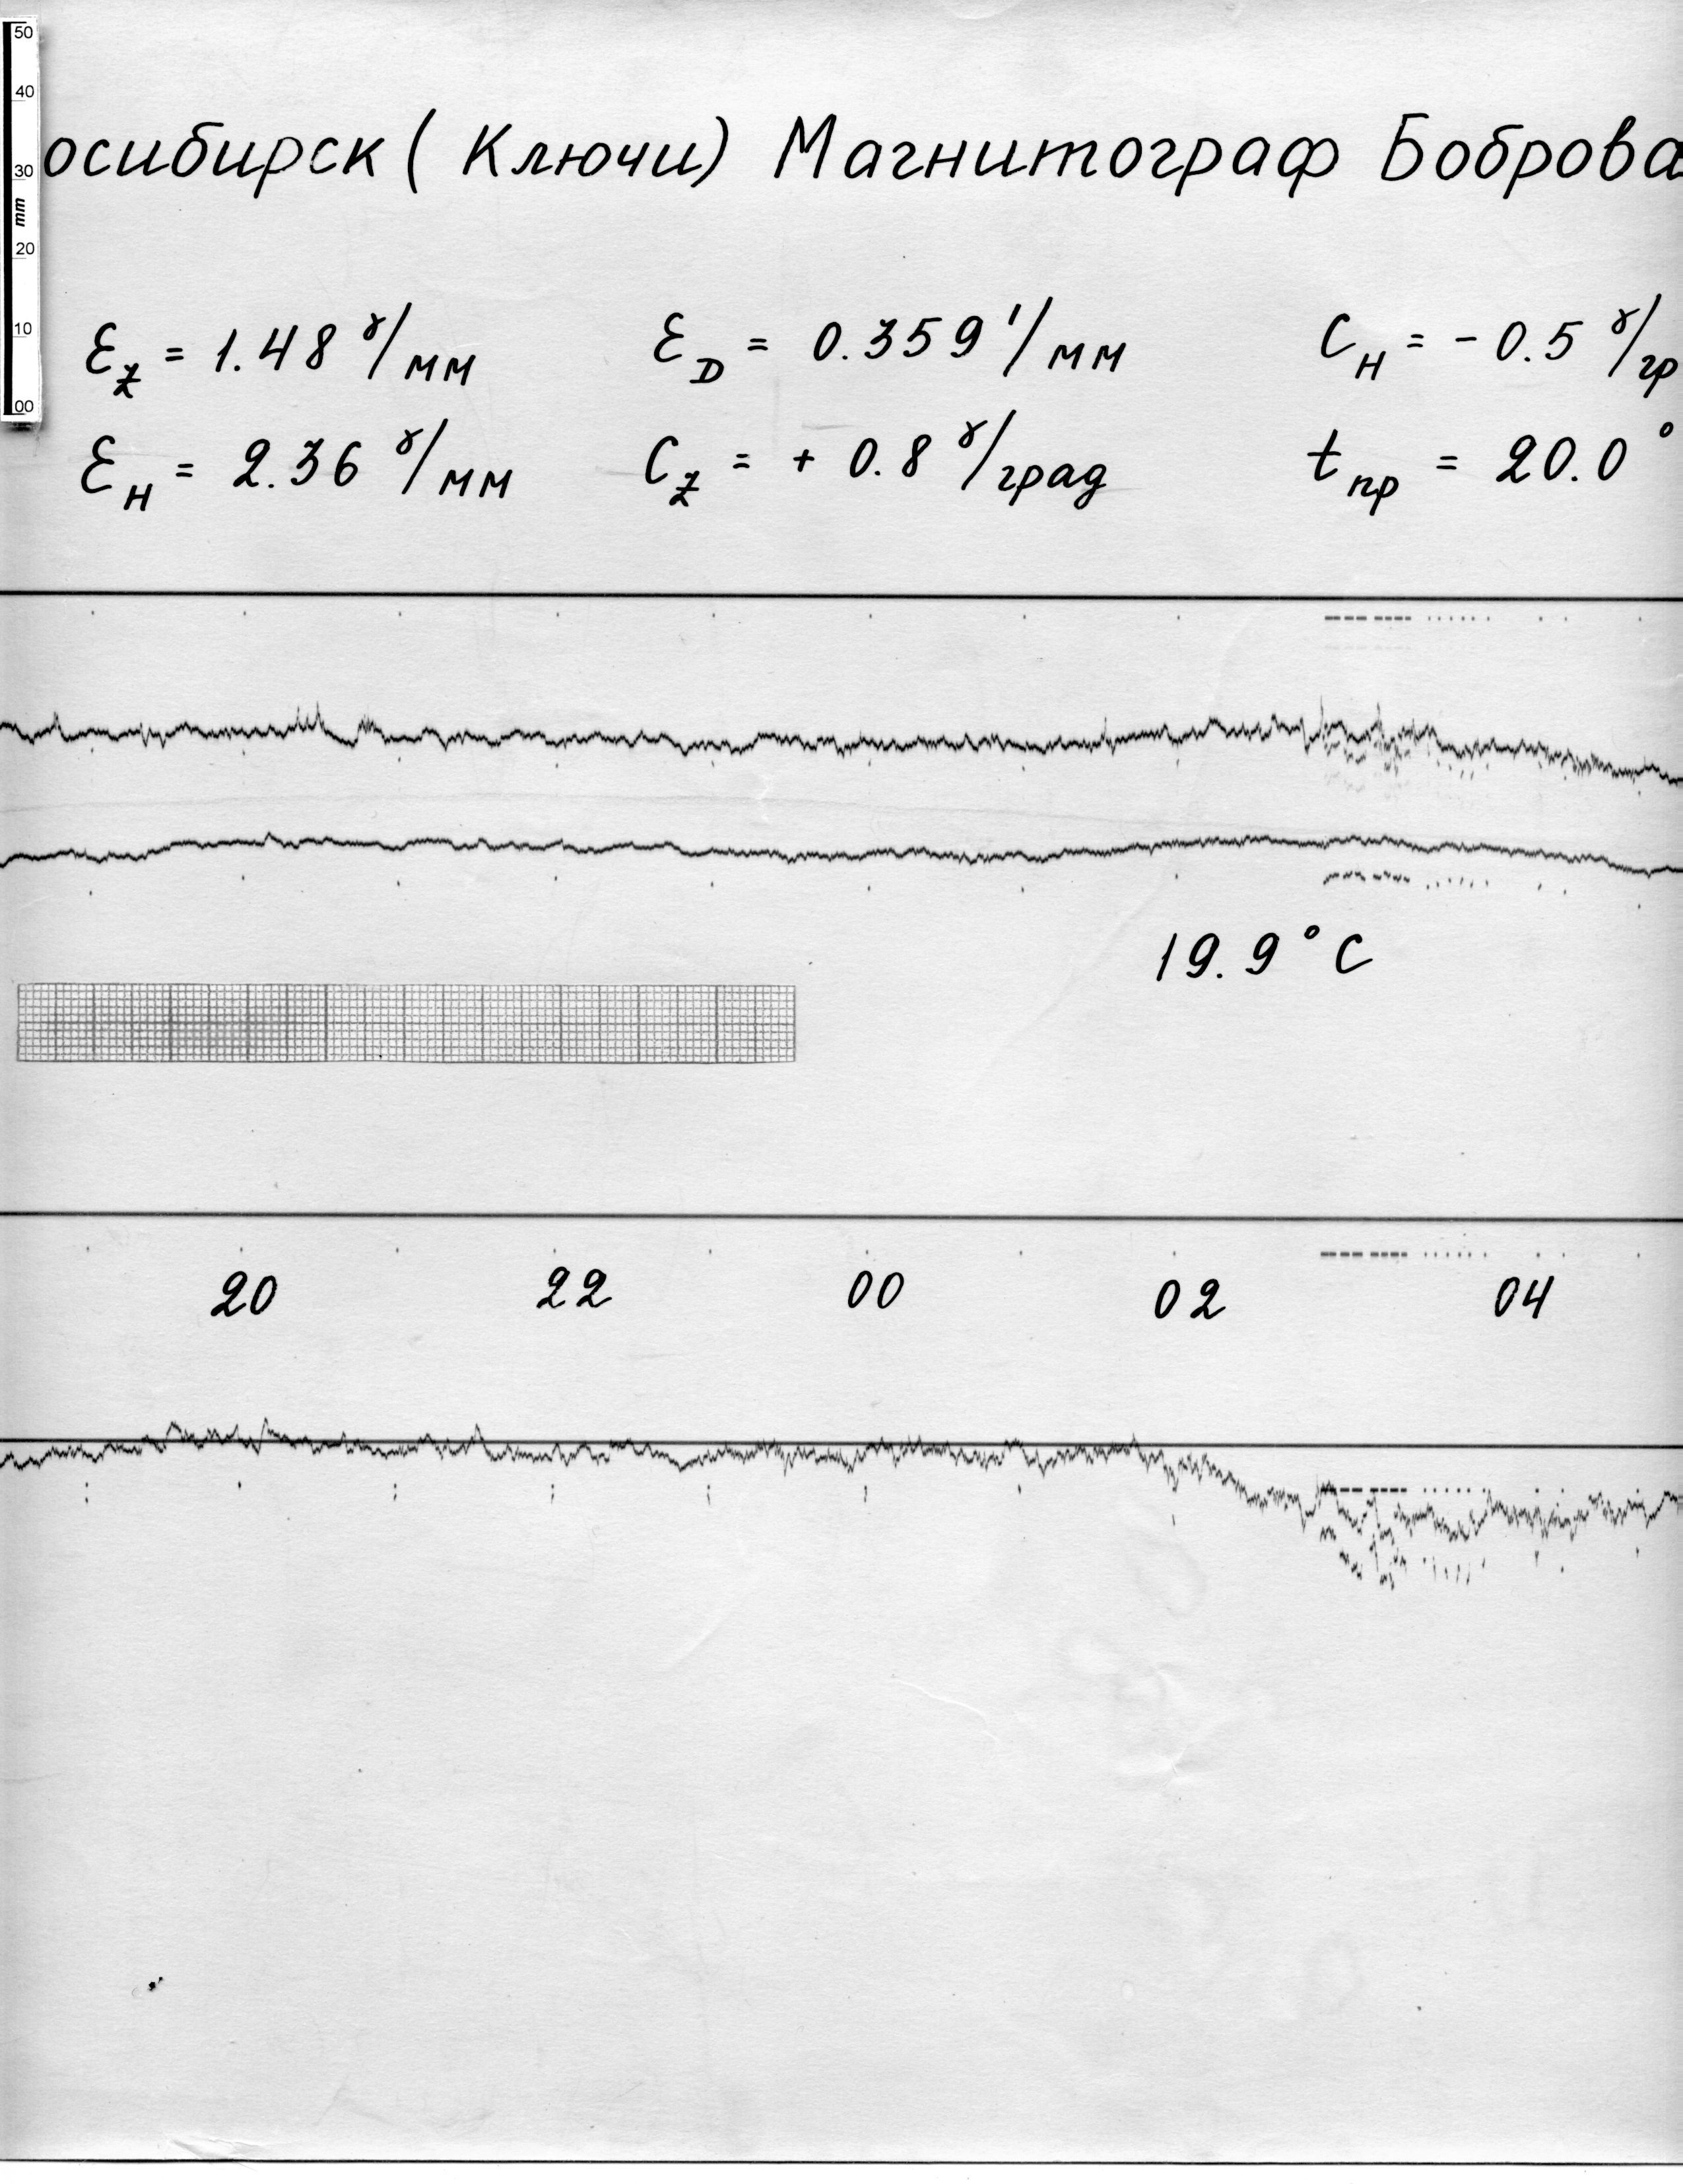 50
40
30
mm
20
10
00
осибирск ( Ключи) Магнитограф Боброва
Ɛz = 1.48 ɣ/мм ƐD = 0.359 '/мм CH = - 0.5 ɣ/гр
ƐH = 2.36 ɣ/мм Cz = + 0.8 ɣ/град tпр = 20.0°
19.9°C
20 22 00 02 04